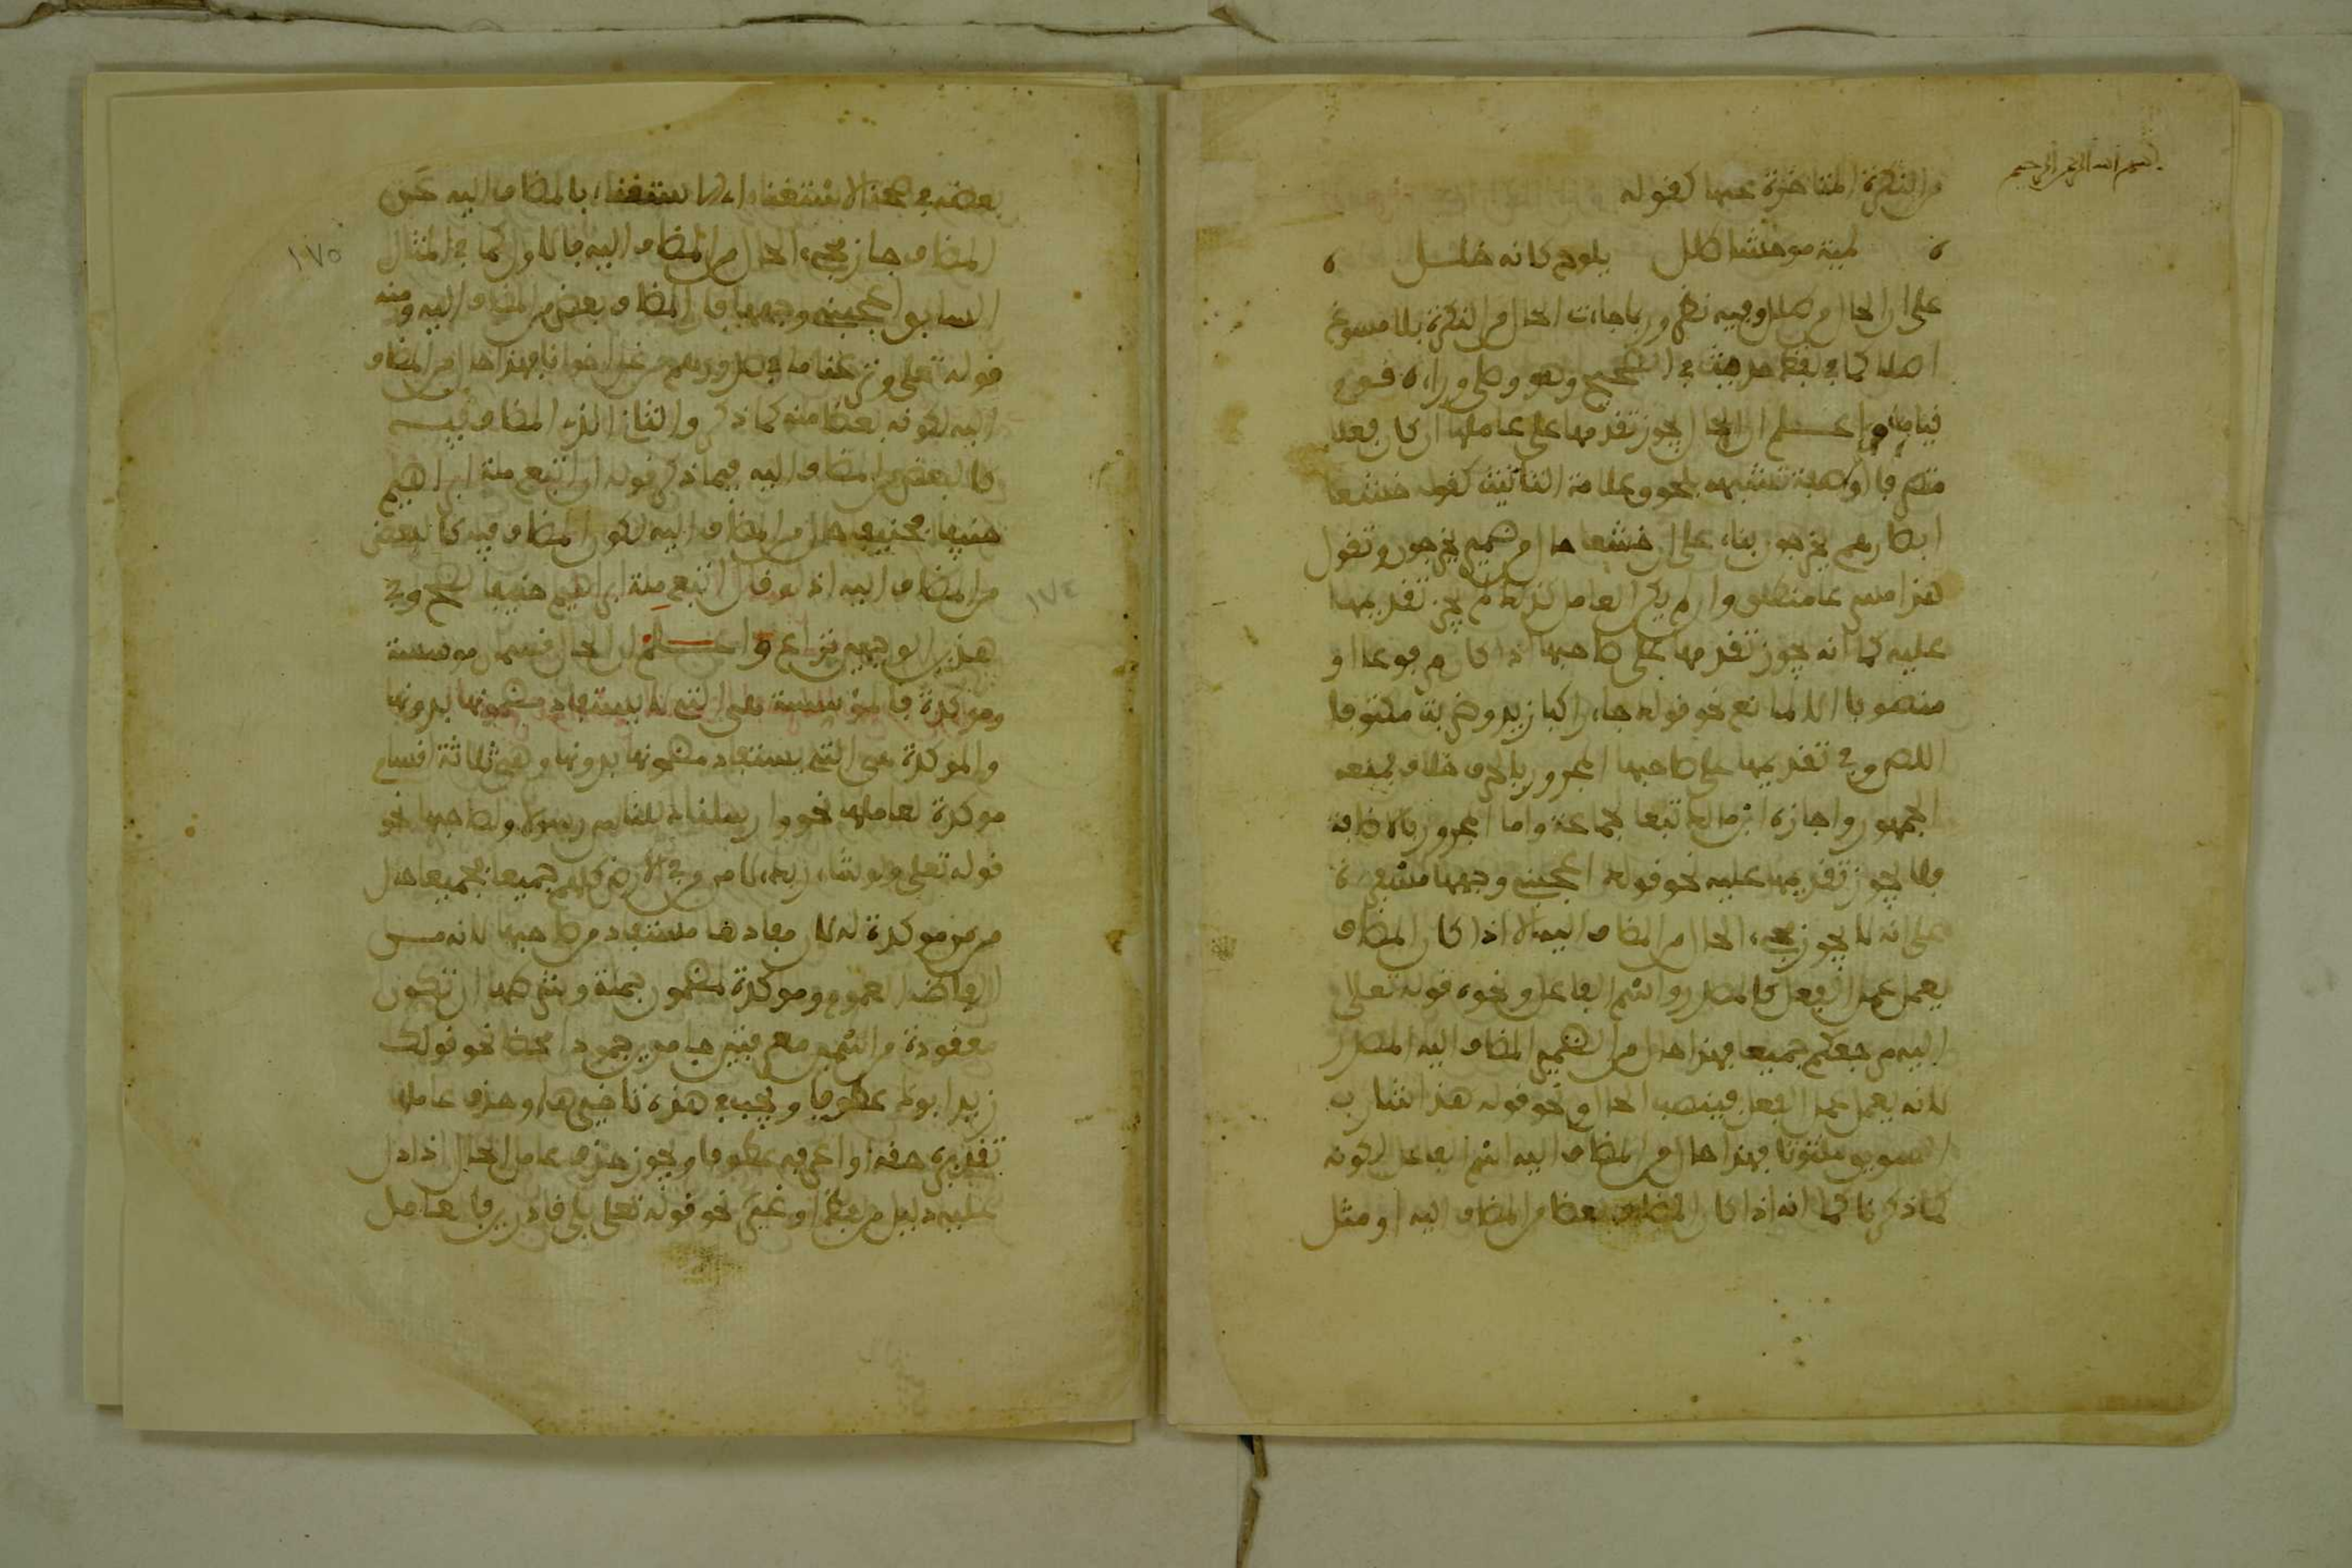 بسم الله الرحمن الرحيم
من النكرة المتاخرة عنها كقوله
لمية موحشا طلل يلوح كانه خلل
على ان الحال من طلل وفيه نظر وربما جاءت الحال من النكرة بلا مسوغ
اصلا كما في لفظ حديث في الصحيح وهو وصلى وراءه قوم
قياما واعلم ان الحال يجوز تقدمها على عاملها ان كان فعلا
متصرفا او صفة تشبهه بلحوق علامة التانيث كقوله خشعا
ابصارهم يخرجون بناء على ان خشعا حال من ضمير يخرجون وتقول
هذا مسرعا منطلق وان لم يكن العامل كذلك لم يجز تقديمها
عليه كما انه يجوز تقدمها على صاحبها اذا كان مرفوعا او
منصوبا الا لمانع نحو قولك جاء راكبا زيد وضربت مكتوفا
اللص وفي تقديمها على صاحبها المجرور بالحرف خلاف يمنعه
الجمهور واجازه ابن مالك تبعا لجماعة واما المجرور بالاضافة
فلا يجوز تقديمها عليه نحو قولك اعجبني وجهها مسفرة
على انه لا يجوز مجيء الحال من المضاف اليه الا اذا كان المضاف
يعمل عمل الفعل كالمصدر واسم الفاعل ونحوه قوله تعالى
اليه مرجعكم جميعا فهذا حال من الضمير المضاف اليه المصدر
لانه يعمل عمل الفعل فينصب الحال ونحو قوله هذا شارب
السويق ملتوتا فهذا حال من المضاف اليه اسم الفاعل لكونه
كما ذكرنا كما انه اذا كان المضاف بعضا من المضاف اليه او مثل
بعضه في صحة الاستغناء بالمضاف اليه عن
المضاف جاز مجيء الحال من المضاف اليه فالاول كما في المثال
السابق اعجبني وجهها فان المضاف بعض من المضاف اليه ومنه
قوله تعلى ونزعنا ما في صدورهم من غل اخوانا فهذا حال من المضاف
اليه لكونه بعضا منه كما ذكر والثاني الذي المضاف فيه
كالبعض من المضاف اليه فيما ذكر قوله ان اتبع ملة ابراهيم
حنيفا فحنيفا حال من المضاف اليه لكون المضاف فيه كالبعض
من المضاف اليه اذ لو قال اتبع ابراهيم حنيفا لصح وفي
هذين الوجهين نزاع واعلم ان الحال قسمان موسسة
وموكدة فالموسسة هي التي لا يستفاد مضمونها بدونها
والموكدة هي التي يستفاد مضمونها بدونها وهي ثلاثة اقسام
موكدة لعاملها نحو وارسلناك للناس رسولا ولصاحبها نحو
قوله تعلى ولو شاء ربك لامن من في الارض كلهم جميعا فجميعا حال
من من موكدة له لان مفادها مستفاد من صاحبها لانه من
الفاظ العموم وموكدة لمضمون جملة وشرطها ان تكون
معقودة من اسمين معرفتين جامدين جمودا محضا نحو قولك
زيد ابوك عطوفا ويجب في هذه تاخيرها وحذف عاملها
تقديره احقه او اعرفه عطوفا ويجوز حذف عامل الحال اذا دل
عليه دليل من لفظ او غيره نحو قوله تعلى بلى قادرين فالعامل
١٧٥
١٧٤